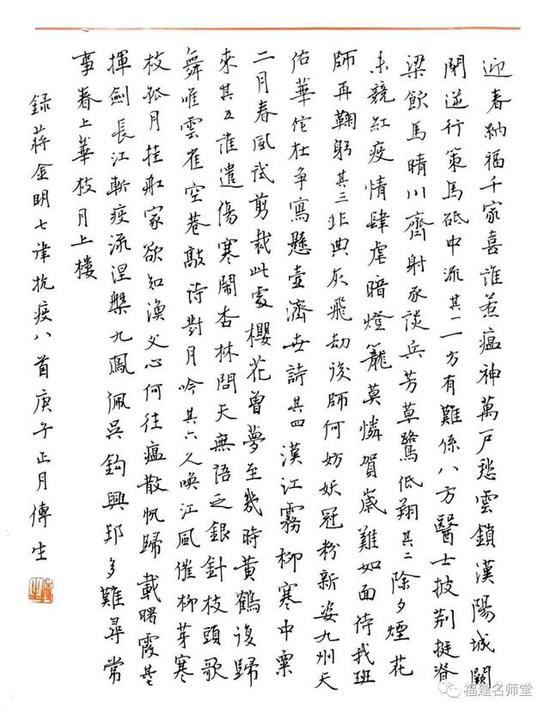 迎春納福千家喜誰惹瘟神萬戶愁雲鎖漢陽城闕
閉逆行策馬砥中流其一一方有難係八方醫士披荊挺脊
梁飲馬晴川齊射豕談兵芳草鷺低翔其二除夕煙花
未競紅疫情肆虐暗燈籠莫憐賀歲難如面待我班
師再鞠躬其三非典灰飛劫後師何妨妖冠粉新姿九州天
佑華佗杜爭寫懸壺濟世詩其四漢江霧柳寒中栗
二月春風試剪裁此處櫻花曾夢至幾時黃鶴復歸
來其五誰遣傷寒鬧杏林問天無語乏銀針枝頭歌
舞唯雲雀空巷敲詩對月吟其六久喚江風催柳芽寒
枝孤月挂船家欲知漁父心何往瘟散帆歸載曙霞其
揮劍長江斬疫流涅槃九鳳佩吳鈎興邦多難尋常
事春上華枝月上樓
錄蔣金明七律抗疫八首庚午正月傅生
福建名师堂